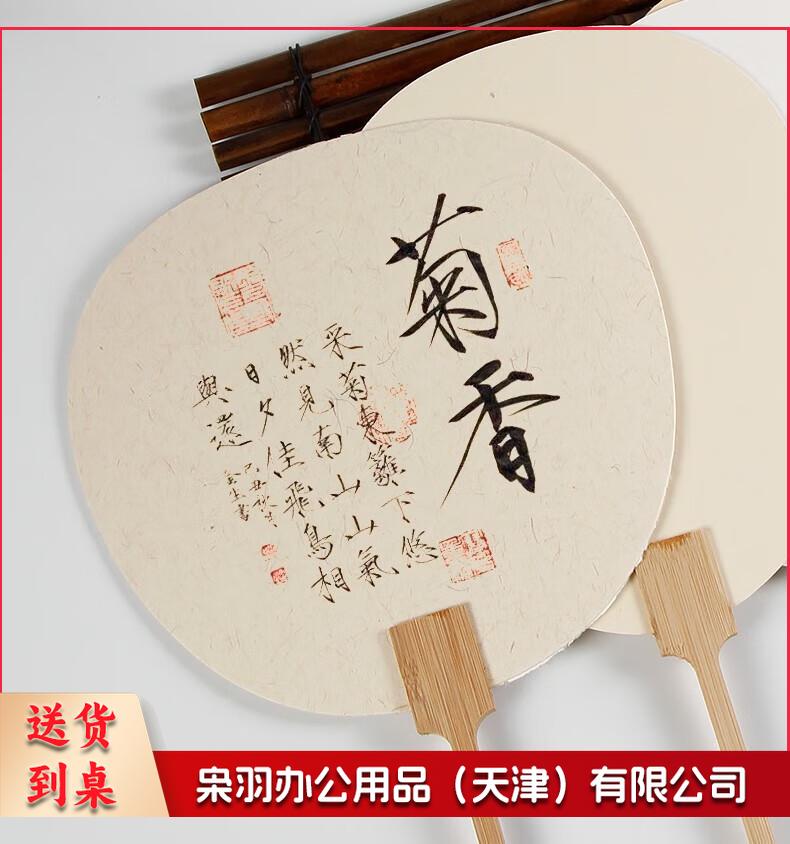 菊香
采菊東籬下悠
然見南山山氣
日夕佳飛鳥相
與還
送货
到桌
枭羽办公用品（天津）有限公司